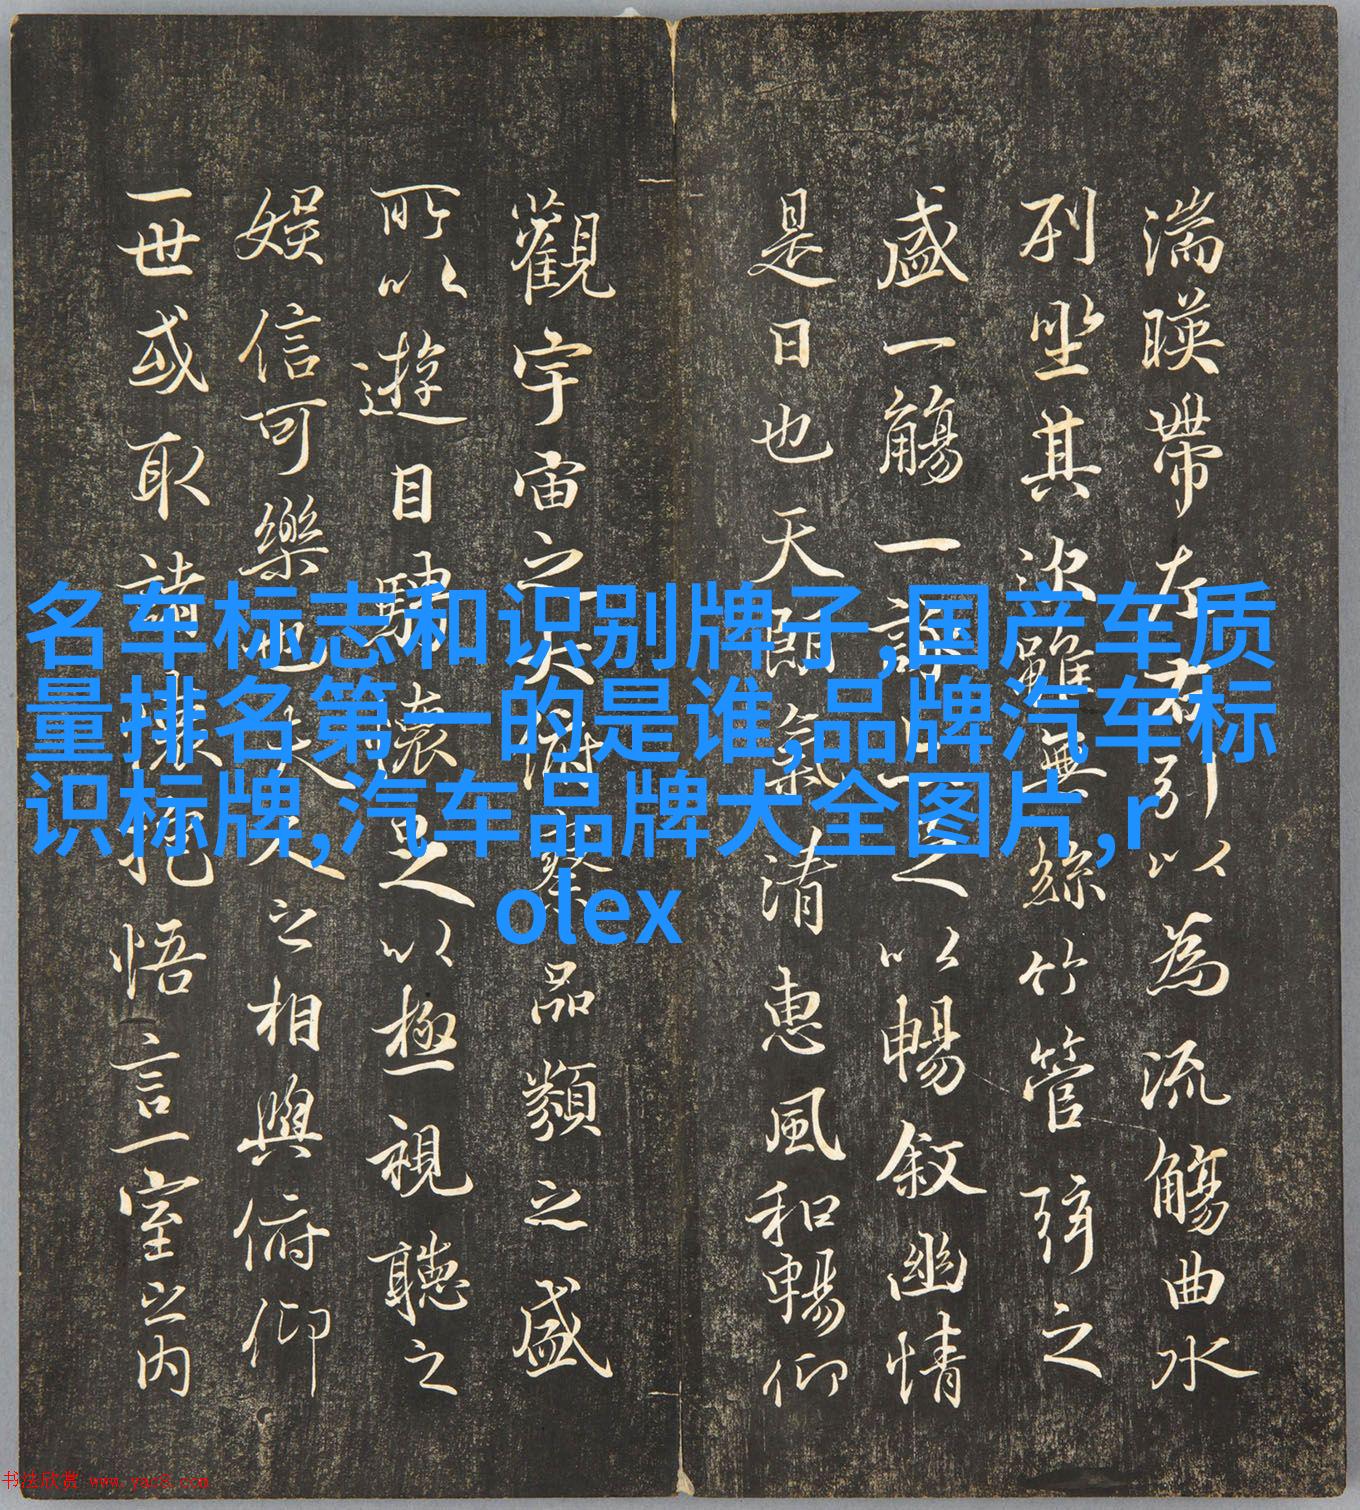 名车标志和识别牌子,国产车质
量排名第一的是谁,品牌汽车标
识标牌,汽车品牌大全图片,r
olex
湍暎帶左右引以為流觴曲水
列坐其次雖無絲竹管弦之
盛一觴一詠以暢叙幽情
是日也天朗氣清惠風和暢仰
觀宇宙之大俯察品類之盛
所以遊目騁懷足以極視聽之
娛信可樂也夫人之相與俯仰
一世或取諸懷抱悟言一室之内
书法欣赏 www.yac8.com